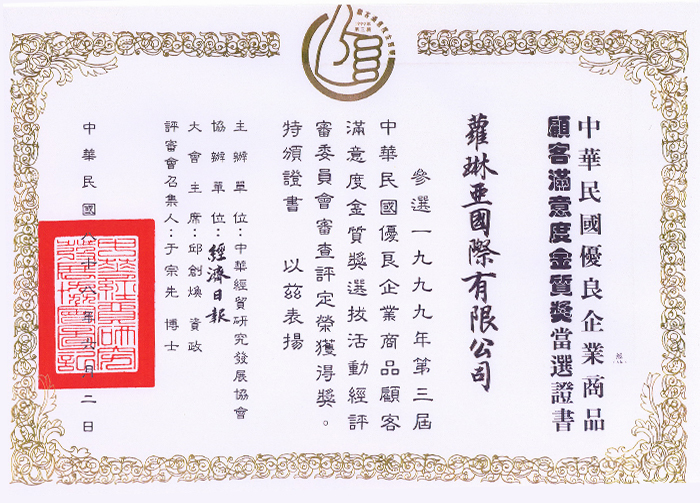 中華民國優良企業商品
顧客滿意度金質獎當選證書
蘿琳亞國際有限公司
參選一九九九年第三屆
中華民國優良企業商品顧客
滿意度金質獎選拔活動經評
審委員會審查評定榮獲得獎。
特頒證書 以茲表揚
主辦單位:中華經貿研究發展協會
協辦單位:經濟日報
大會主席:邱創煥 資政
評審會召集人:于宗先 博士
中華民國八十八年 月二日